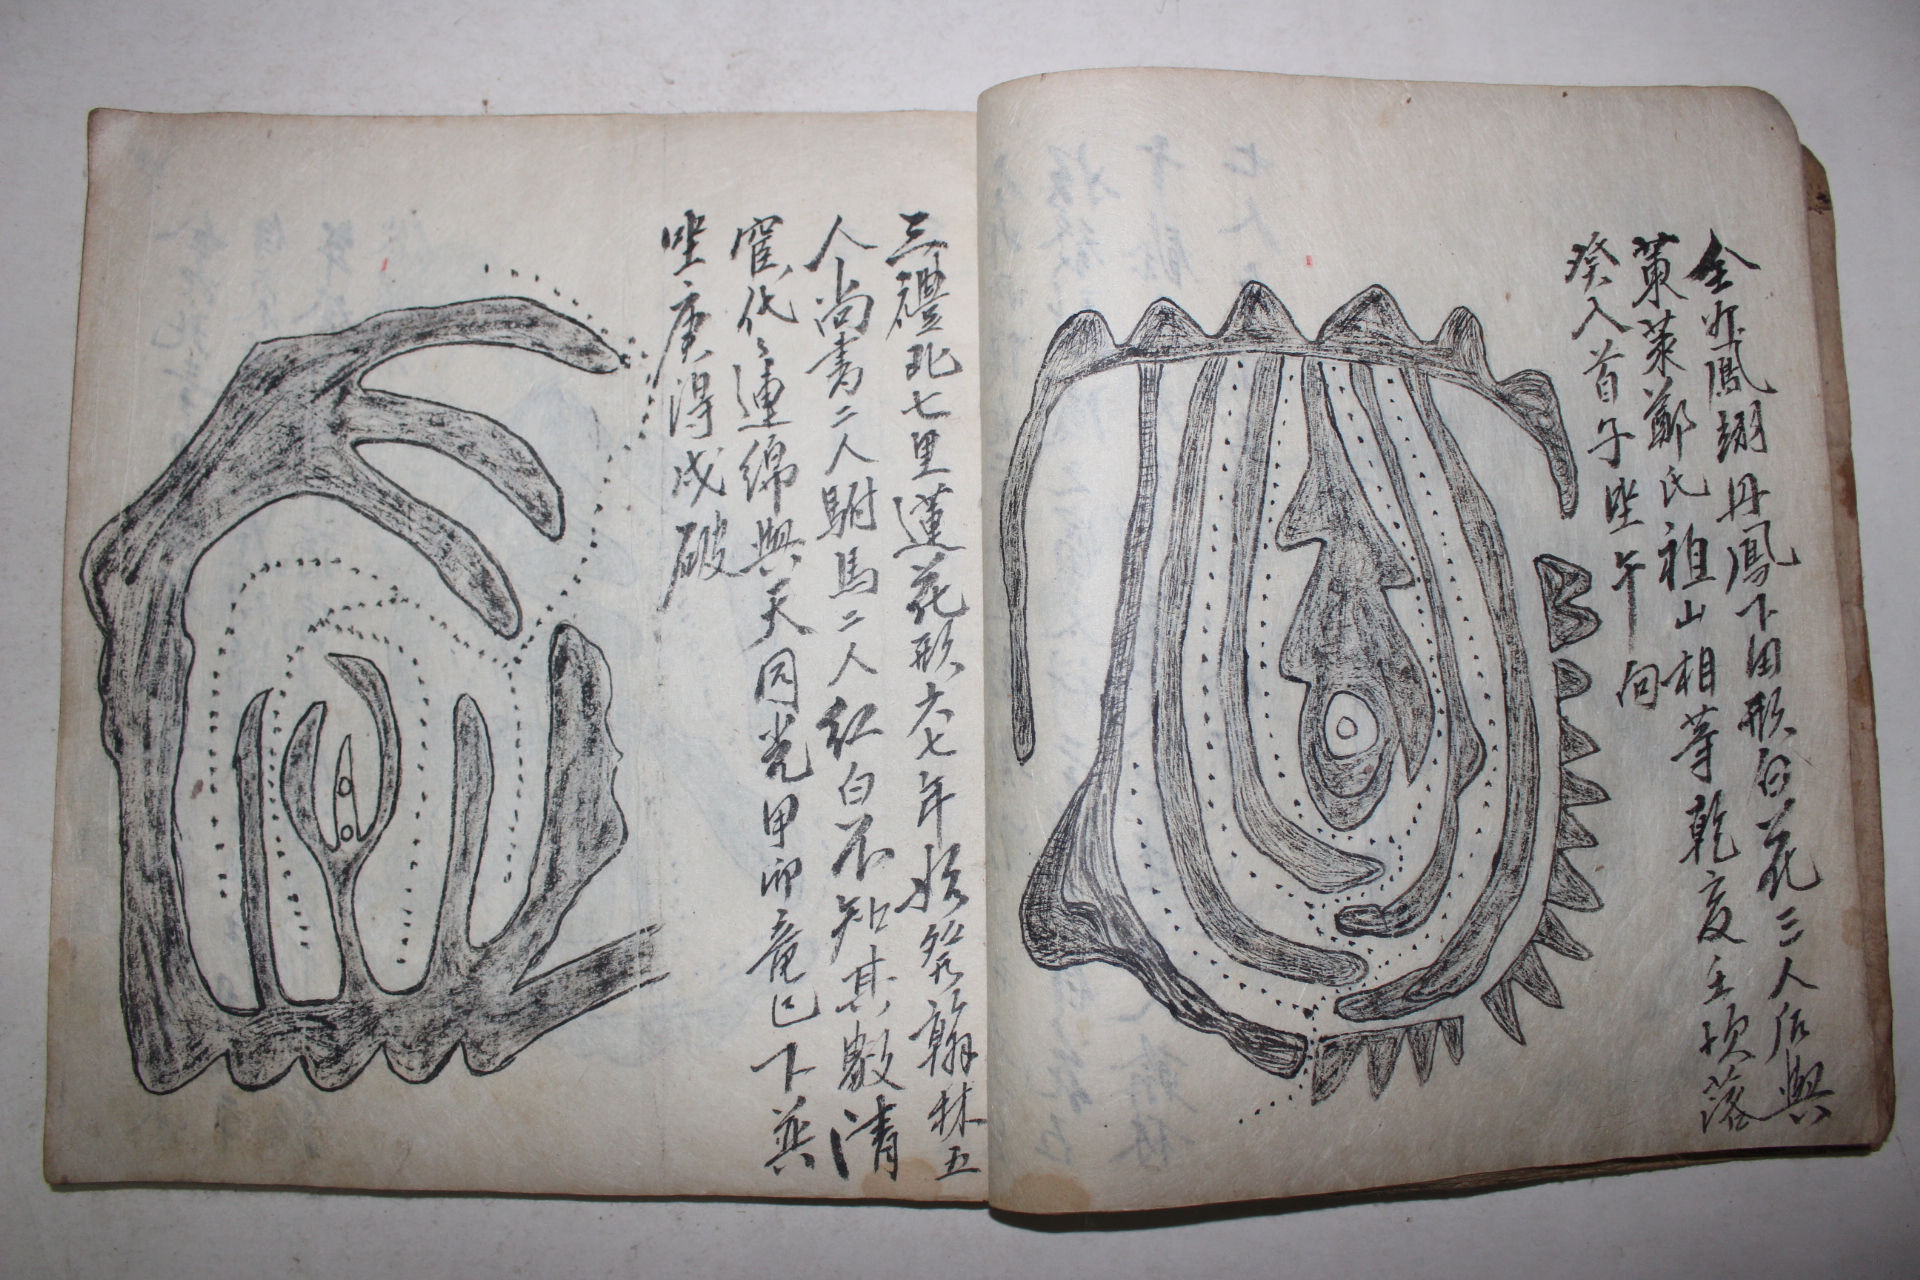 全州鳳翔丹鳳下田形白花三人后與
東萊鄭氏祖山相等乾亥主順落
癸入首子坐午向
三礼北七里蓮花形六七年始發翰林五
人尚書二人駙馬二人紅白不知其數清
宦代〻連綿與天同光甲卯竜巳下巽
坐庚得戌破